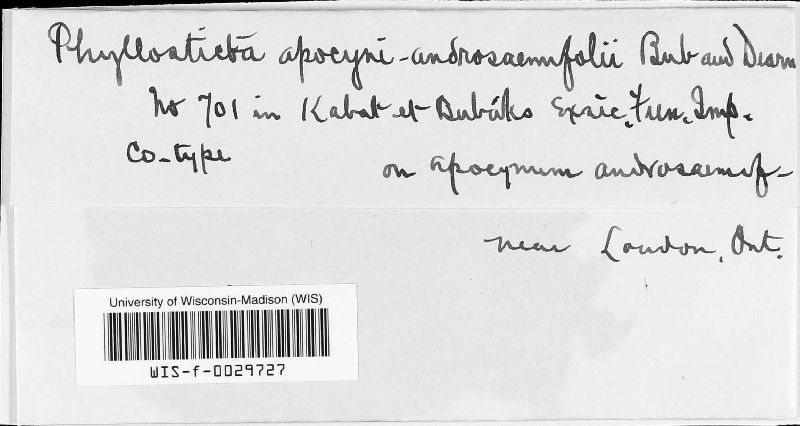 Phyllosticta apocyni-androsaemifolii Bub and Dearn
No 701 in Kabat et Bubáks Exsic. Fun. Imp.
Co-type
on apocynum androsaemif-
near London, Ont.
University of Wisconsin-Madison (WIS)
WIS-f-0029727